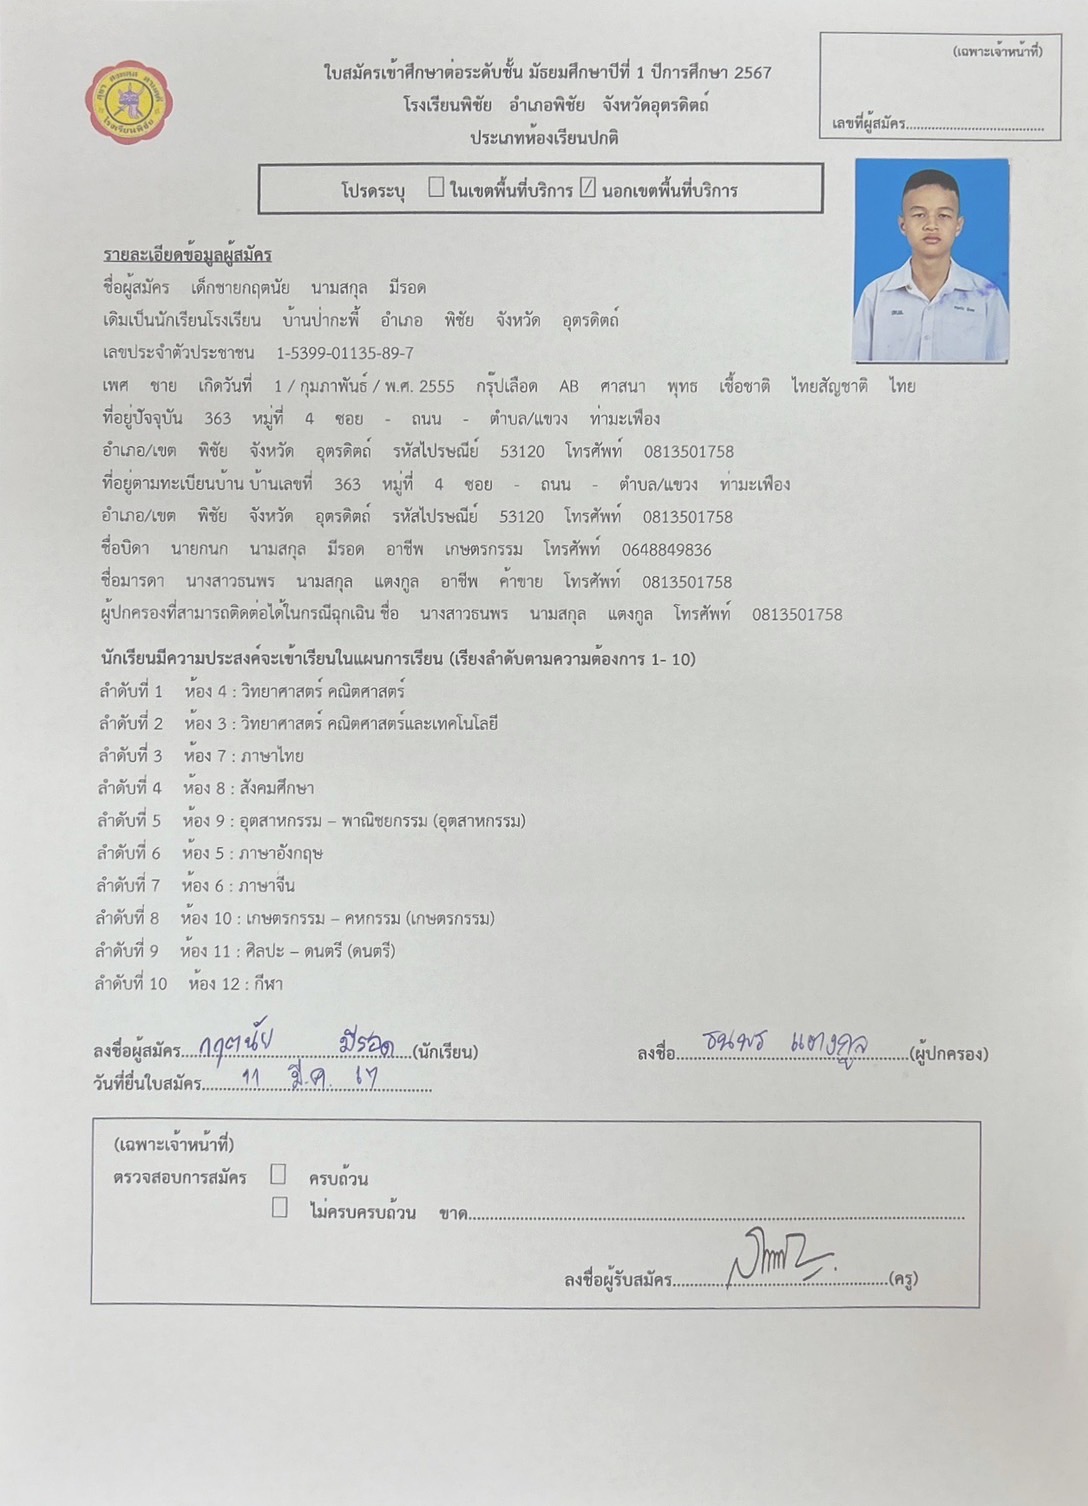 (เฉพาะเจ้าหน้าที่)
เลขที่ผู้สมัคร......................................
ใบสมัครเข้าศึกษาต่อระดับชั้น มัธยมศึกษาปีที่ 1 ปีการศึกษา 2567
โรงเรียนพิชัย อำเภอพิชัย จังหวัดอุตรดิตถ์
ประเภทห้องเรียนปกติ
โรงเรียนพิชัย
โปรดระบุ ☐ ในเขตพื้นที่บริการ ☑ นอกเขตพื้นที่บริการ
รายละเอียดข้อมูลผู้สมัคร
ชื่อผู้สมัคร เด็กชายกฤตนัย นามสกุล มีรอด
เดิมเป็นนักเรียนโรงเรียน บ้านป่ากะพี้ อำเภอ พิชัย จังหวัด อุตรดิตถ์
เลขประจำตัวประชาชน 1-5399-01135-89-7
เพศ ชาย เกิดวันที่ 1 / กุมภาพันธ์ / พ.ศ. 2555 กรุ๊ปเลือด AB ศาสนา พุทธ เชื้อชาติ ไทยสัญชาติ ไทย
ที่อยู่ปัจจุบัน 363 หมู่ที่ 4 ซอย - ถนน - ตำบล/แขวง ท่ามะเฟือง
อำเภอ/เขต พิชัย จังหวัด อุตรดิตถ์ รหัสไปรษณีย์ 53120 โทรศัพท์ 0813501758
ที่อยู่ตามทะเบียนบ้าน บ้านเลขที่ 363 หมู่ที่ 4 ซอย - ถนน - ตำบล/แขวง ท่ามะเฟือง
อำเภอ/เขต พิชัย จังหวัด อุตรดิตถ์ รหัสไปรษณีย์ 53120 โทรศัพท์ 0813501758
ชื่อบิดา นายกนก นามสกุล มีรอด อาชีพ เกษตรกรรม โทรศัพท์ 0648849836
ชื่อมารดา นางสาวธนพร นามสกุล แตงกูล อาชีพ ค้าขาย โทรศัพท์ 0813501758
ผู้ปกครองที่สามารถติดต่อได้ในกรณีฉุกเฉิน ชื่อ นางสาวธนพร นามสกุล แตงกูล โทรศัพท์ 0813501758
นักเรียนมีความประสงค์จะเข้าเรียนในแผนการเรียน (เรียงลำดับตามความต้องการ 1- 10)
ลำดับที่ 1 ห้อง 4 : วิทยาศาสตร์ คณิตศาสตร์
ลำดับที่ 2 ห้อง 3 : วิทยาศาสตร์ คณิตศาสตร์และเทคโนโลยี
ลำดับที่ 3 ห้อง 7 : ภาษาไทย
ลำดับที่ 4 ห้อง 8 : สังคมศึกษา
ลำดับที่ 5 ห้อง 9 : อุตสาหกรรม – พาณิชยกรรม (อุตสาหกรรม)
ลำดับที่ 6 ห้อง 5 : ภาษาอังกฤษ
ลำดับที่ 7 ห้อง 6 : ภาษาจีน
ลำดับที่ 8 ห้อง 10 : เกษตรกรรม – คหกรรม (เกษตรกรรม)
ลำดับที่ 9 ห้อง 11 : ศิลปะ – ดนตรี (ดนตรี)
ลำดับที่ 10 ห้อง 12 : กีฬา
ลงชื่อผู้สมัคร...กฤตนัย มีรอด...(นักเรียน) ลงชื่อ...ธนพร แตงกูล...(ผู้ปกครอง)
วันที่ยื่นใบสมัคร...11 มี.ค. 67...
(เฉพาะเจ้าหน้าที่)
ตรวจสอบการสมัคร ☐ ครบถ้วน
☐ ไม่ครบครบถ้วน ขาด..............................
ลงชื่อผู้รับสมัคร..............................(ครู)